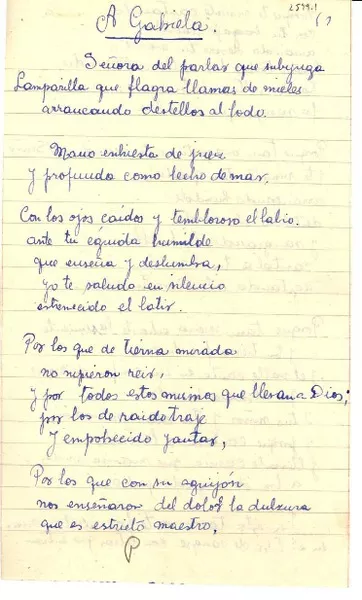 2579.1
A Gabriela.
Señora del parlar que subyuga
Lamparilla que flagra llamas de mieles
arrancando destellos al lodo.
Mano enhiesta de
y profunda como lecho de mar.
Con los ojos caídos y tembloroso el labio.
ante tu égida humilde
que enseña y deslumbra,
yo te saludo en silencio
estremecido el latir.
Por los que de tierna mirada
no supieron reir,
y por todos estos mismos que llevan a Dios;
por los de raido traje
y empobrecido yantar,
Por los que con su aguijón
nos enseñaron del dolor la dulzura
que es estricto maestro,